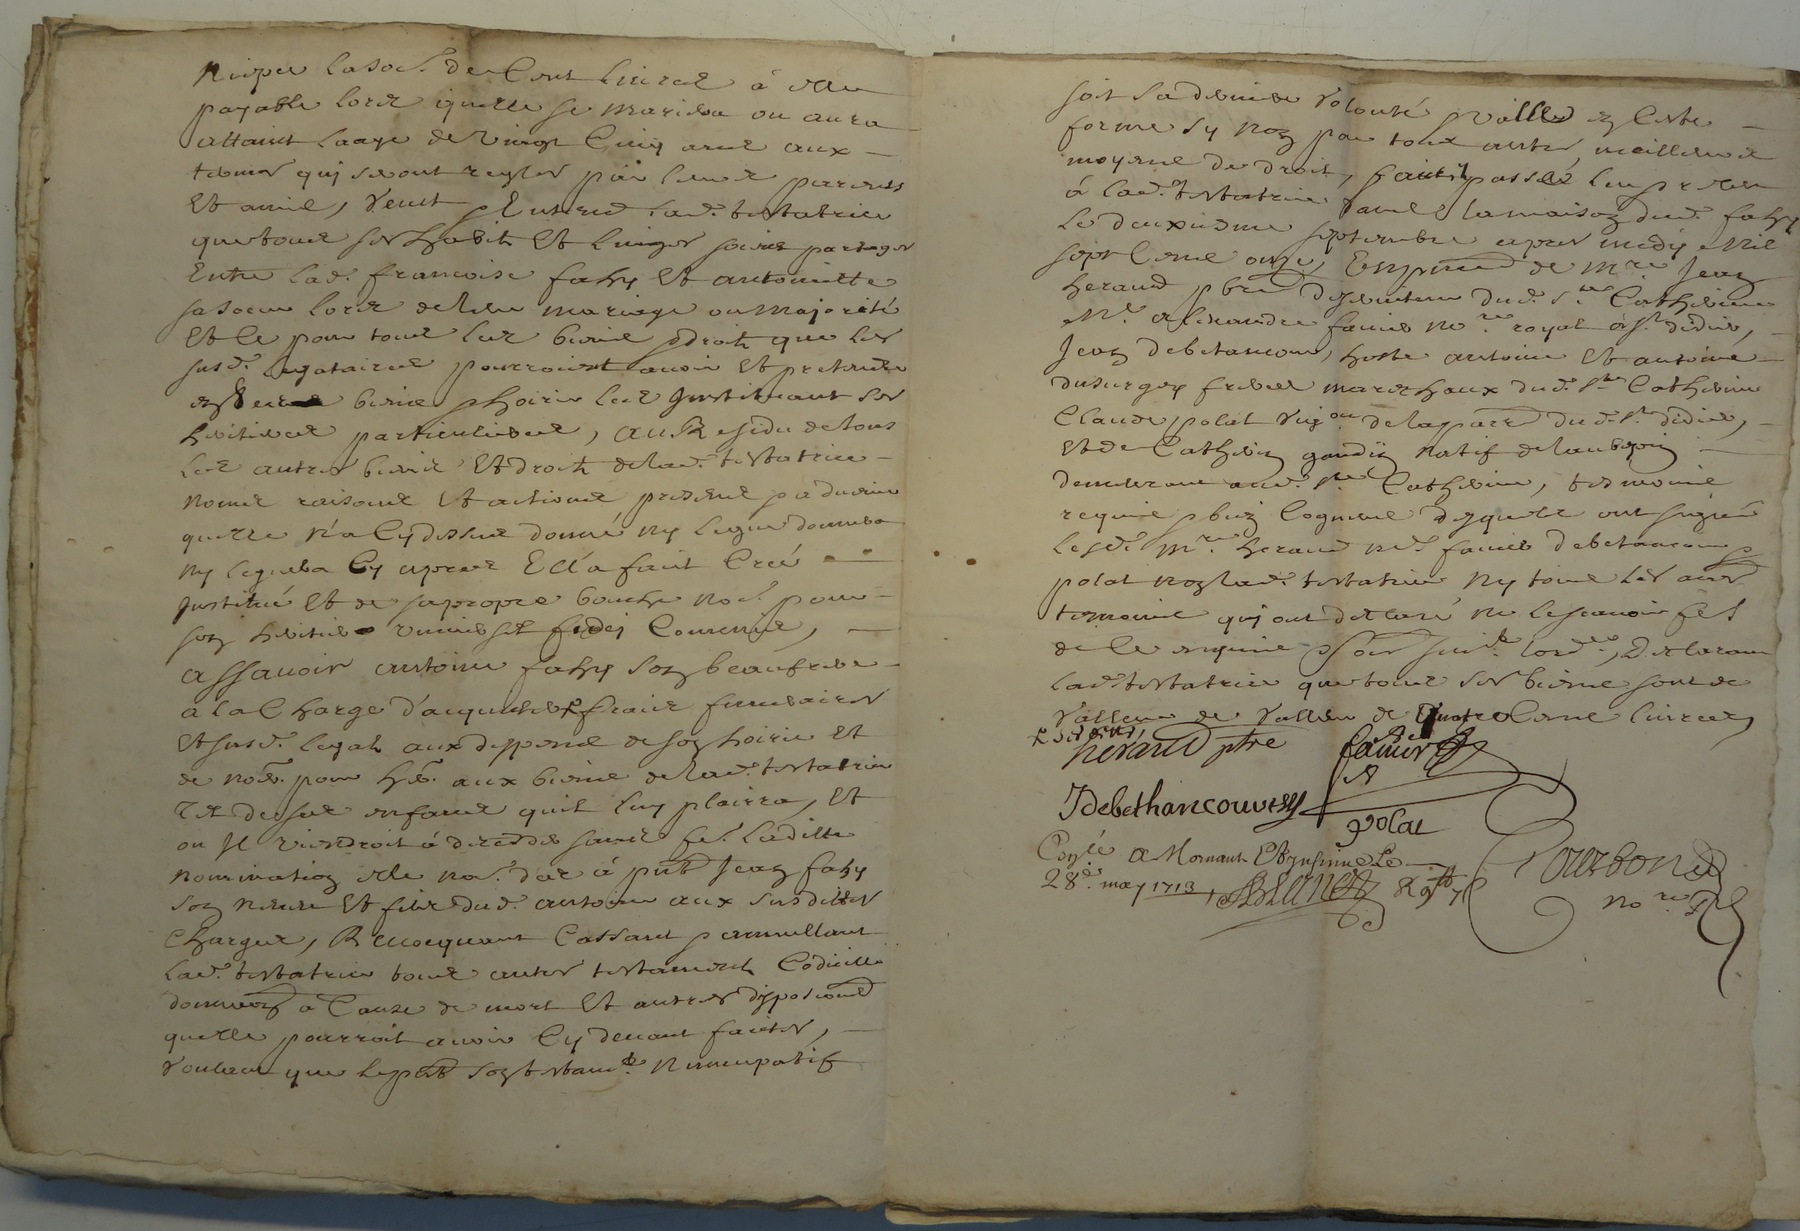 Niepce la so.e de Cent livres à elle
payable lors quelle se mariera ou aura
attaint laage de vingt Cinq ans aux
termes qui seront reglés par leurs parents
Et amis, veut Entend lad. testatrice
que tous ses habits Et linges soient partagés
Entre lad. francoise fahy Et antoinette
sa soeur lors de leur mariage ou majorité
Et ce pour tous les biens droits que les
susd. legataires pourroient avoir Et pretendre
en ses biens hoirie les Instituant ses
héritiers particuliers, au Residu de tous
les autres biens Et droits de lad. testatrice
noms raisons Et actions, presents à venir
quelle n'a Cy dessus donné ny legué donnera
ny leguera Cy apres Ell'a fait Créé
Institué Et de sa propre bouche no.é pour
son héritier universel fidei Commis,
assavoir antoine fahy son beaufrere
a la Charge d'acquitter fraix funeraires
Et susd. legats aux depends de son hoirie Et
de no.er pour her. aux biens de lad. testatrice
tel de ses enfans quil luy plairra, Et
ou Il viendroit à deceder sans fe. ladite
nomination elle no.e des à put Jean fahy
son neveu Et fils dud. antoine aux susdites
Charges, Revocquant Cassant annullant
lad. testatrice tous autres testaments Codicille
donnaon à Cause de mort Et autres dispositions
quelle pourroit avoir Cy devant faites,
voulant que le put son testam.t Nuncupatif
soit sa derniere volonté vallable en Cette
forme sy non par tous autres meilleurs
moyens de droit, fait passé leu relleu
à lad. testatrice dans la maison dud. fahy
le deuxieme septembre apres midy Mil
sept Cens onze, En pnce de m.re Jean
heraud pbre deserviteur dud. s.te Catherine
M.e alexandre favier no.re royal à s.t didier,
Jean debetancour, hoste antoine Et antoine
dusurgey freres mareschaux dud. s.te Catherine
Claude polat vig.on de la parr.e dud. s.t didier,
Et de Catherin gaudin natif de laubepin
demeurant aud. s.te Catherine, tesmoins
requis bien Cogneus desquels ont signé
lesd. M.re heraud M.e favier debetancour
polat non lad. testatrice ny tous les aut.
temoins qui ont declaré ne le scavoir fe.
de ce enquis sommé suiv.t lord.ce, Declarant
lad. testatrice que tous ses biens sont de
valleur de valleur de quatre Cens livres,
heraud pbre favier
Jdebethancourt polat
Con.lé à Mornant Et Insinué Le
28.e may 1713
Bourbon
no.re R